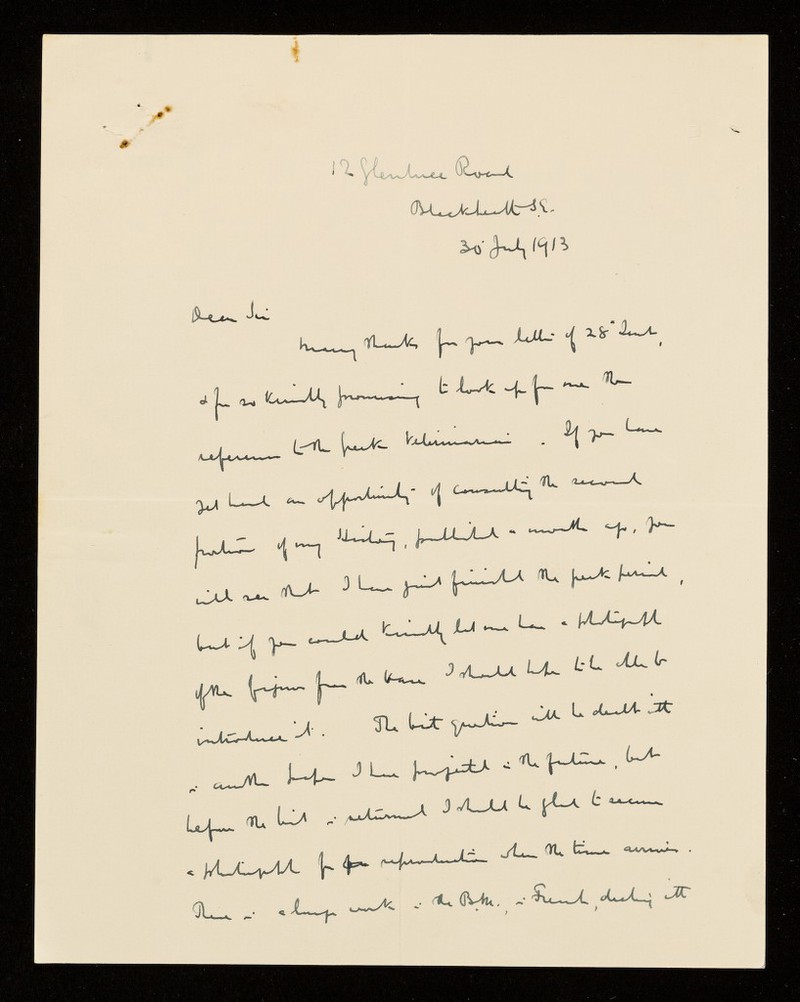 12 Glenluce Road
Blackheath S.E.
30 July 1913
Dear Sir
Many thanks for your letter of 28th Inst,
& for so kindly promising to look up for me the
reference to the Greek Veterinarian. If you have
yet had an opportunity of consulting the second
portion of my History, published a month ago, you
will see that I have just finished the Greek period,
but if you could kindly let me have a photograph
of the figures from the Vase I should like to be able to
introduce it. The bit question will be dealt with
in another paper I have projected in the future, but
before the bit is returned I should be glad to secure
a photograph for reproduction when the time arrives.
There is a large work in the B.M., in French, dealing with